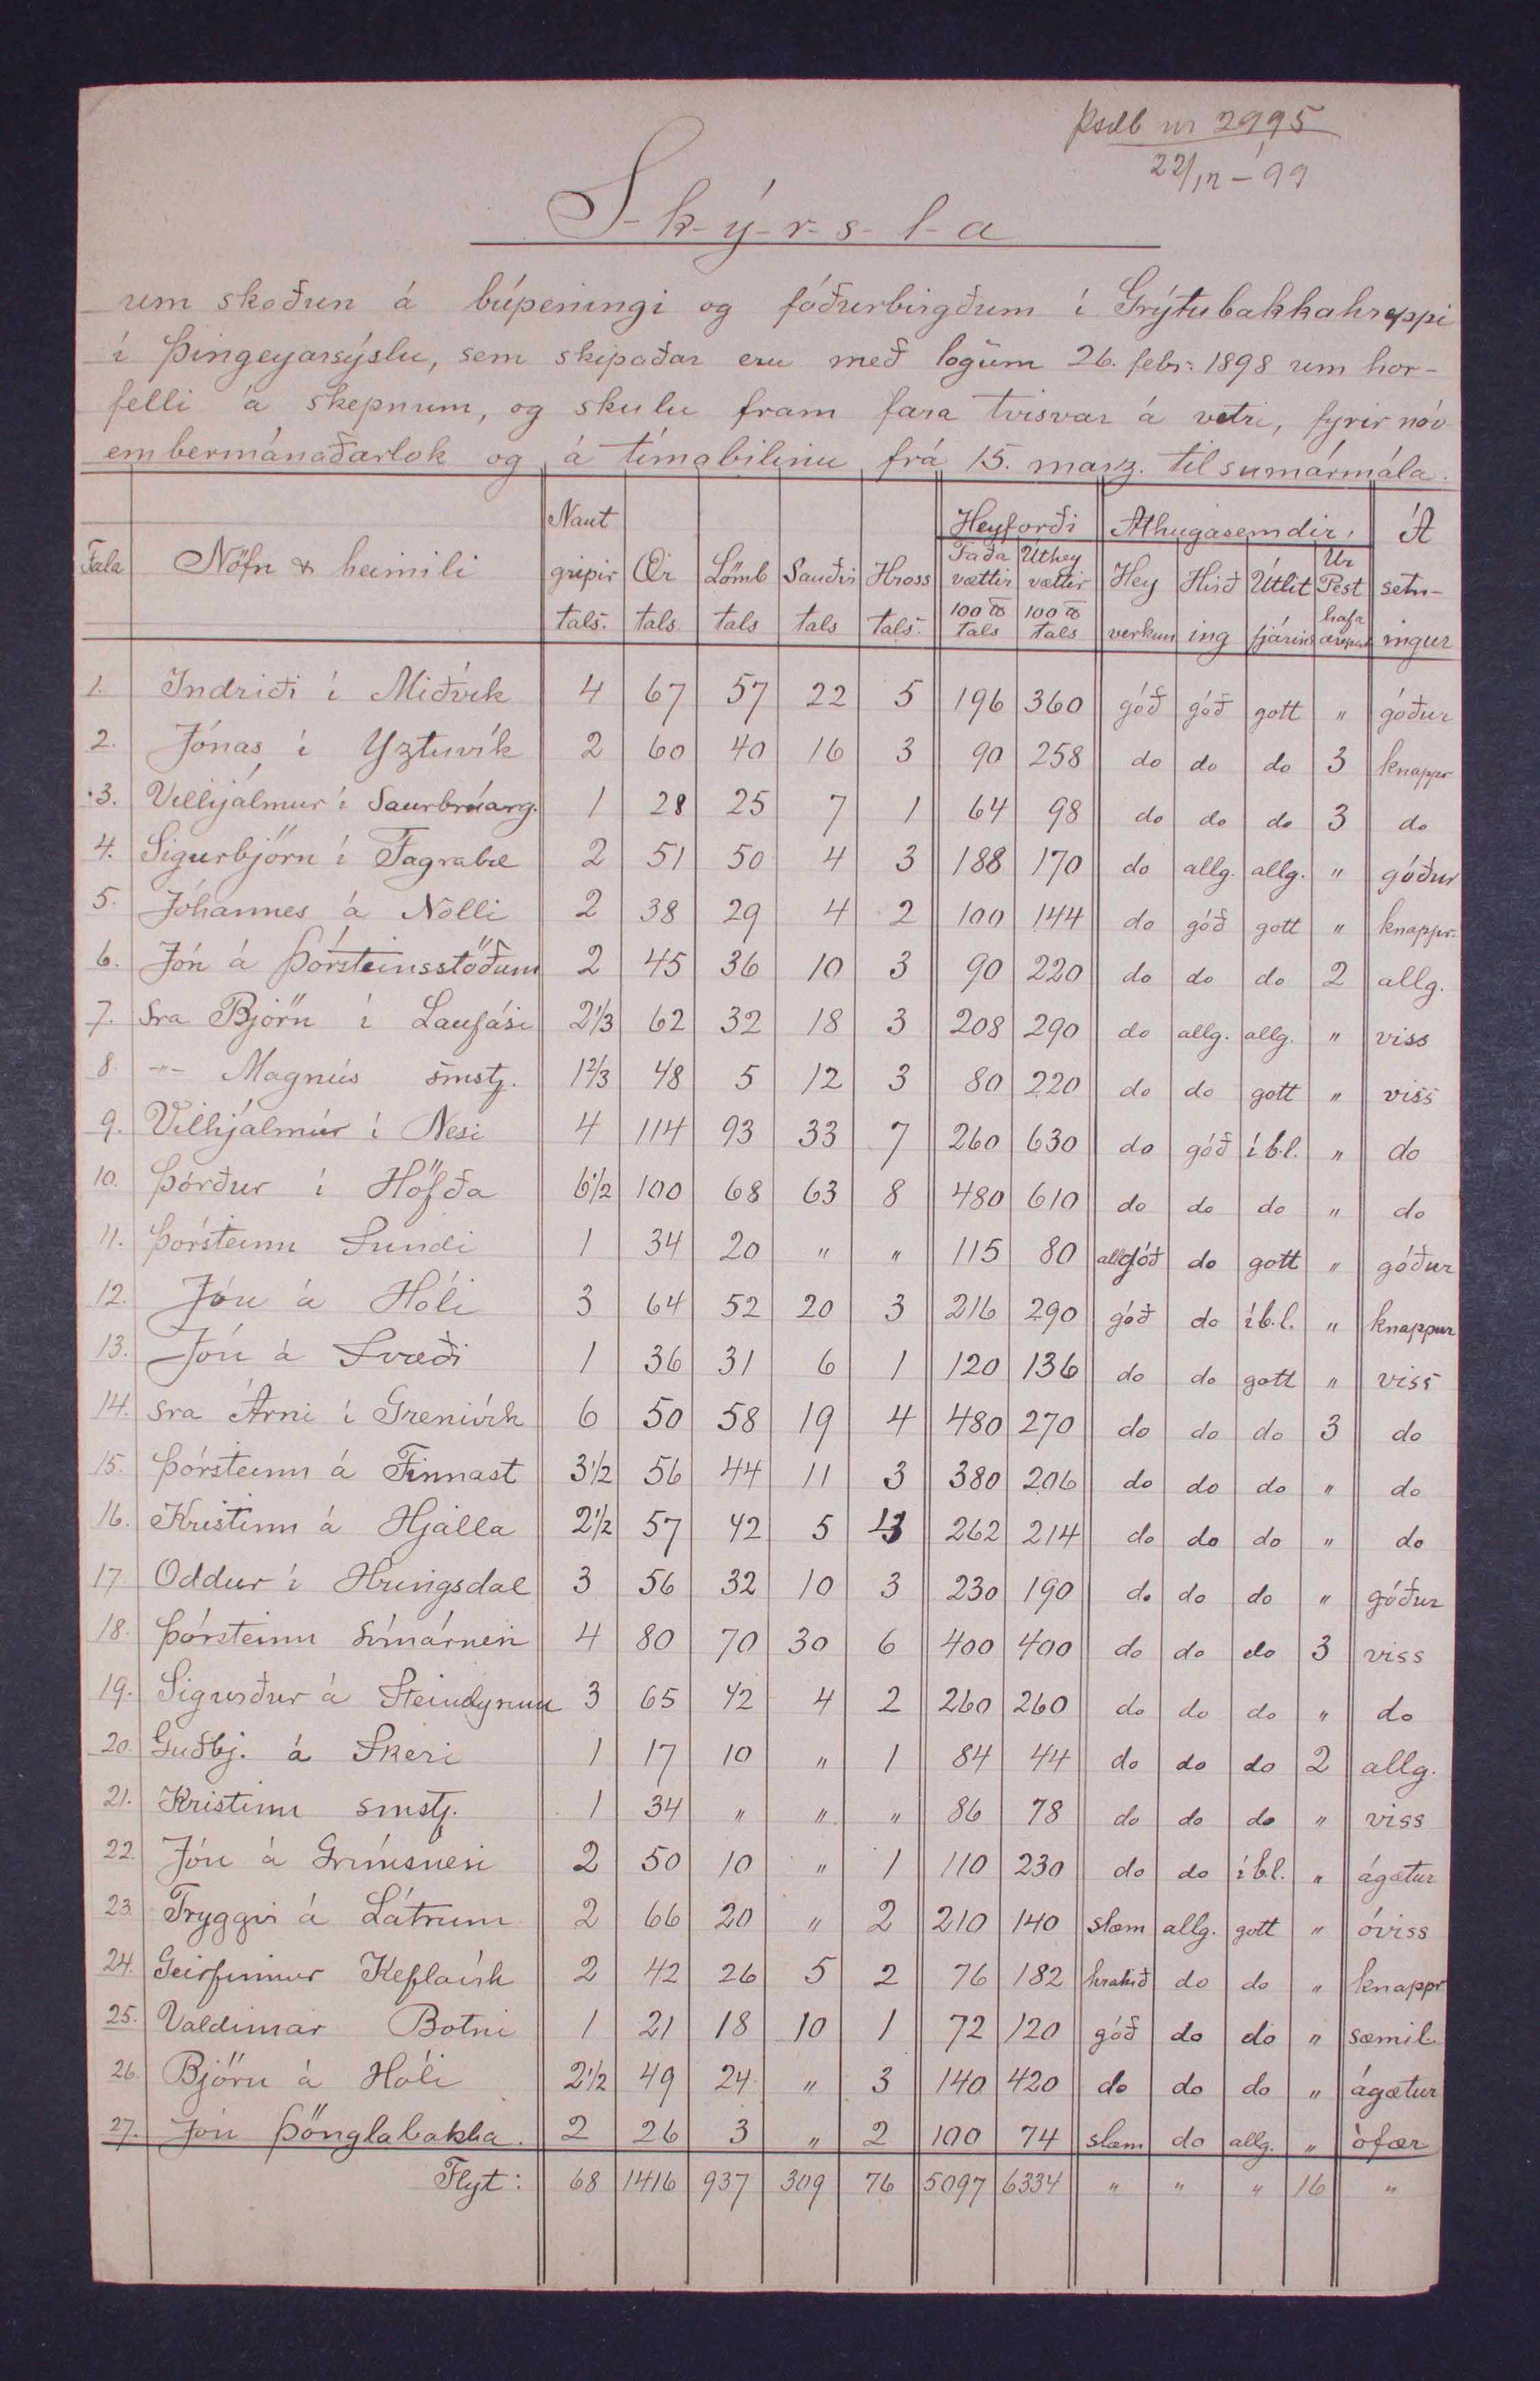 nr 2995
22/12 - 99
S-k-ý-r-s-l-a
um skoðun á búpeningi og fóðurbirgðum í Grýtubakkahreppi
í Þingeyarsýslu, sem skipaðar eru með lögum 26. febr. 1898 um hor-
felli á skepnum, og skulu fram fara tvisvar á vetri, fyrir nóv
embermánaðarlok og á tímabilinu frá 15. marz. til sumármála.
Tala | Nöfn & heimili | Naut gripir tals. | Ær tals. | Lömb tals | Sauðir tals | Hross tals. | Heyforði Taða vættir 100 ℔ tals | Úthey vættir 100 ℔ tals | Athugasemdir. Hey verkun | Hirð ing | Útlit fjárins | Úr Pest hafa drepist | Á setn- ingur
1. Indriði í Miðvík 4 67 57 22 5 196 360 góð góð gott " góður
2. Jónas í Yztuvík 2 60 40 16 3 90 258 do do do 3 knappr
3. Vilhjálmur í Saurbrúarg. 1 28 25 7 1 64 98 do do do 3 do
4. Sigurbjörn í Fagrabæ 2 51 50 4 3 188 170 do allg. allg. " góður
5. Jóhannes á Nölli 2 38 29 4 2 100 144 do góð gott " knappr.
6. Jón á Þórsteinsstöðum 2 45 36 10 3 90 220 do do do 2 allg.
7. Sra Björn í Laufási 2 1/3 62 32 18 3 208 290 do allg. allg. " viss
8. -"- Magnús smstj. 1 2/3 48 5 12 3 80 220 do do gott " viss
9. Vilhjálmur í Nesi 4 114 93 33 7 260 630 do góð í b.l. " do
10. Þórður í Höfða 6 1/2 100 68 63 8 480 610 do do do " do
11. Þórsteinn Sundi 1 34 20 " " 115 80 allgóð do gott " góður
12. Jón á Hóli 3 64 52 20 3 216 290 góð do í b.l. " knappur
13. Jón á Svæði 1 36 31 6 1 120 136 do do gott " viss
14. sra Árni í Grenivík 6 50 58 19 4 480 270 do do do 3 do
15. Þórsteinn á Finnast 3 1/2 56 44 11 3 380 206 do do do " do
16. Kristinn á Hjalla 2 1/2 57 42 5 3 262 214 do do do " do
17. Oddur í Hringsdal 3 56 32 10 3 230 190 do do do " góður
18. Þórsteinn 4 80 70 30 6 400 400 do do do 3 viss
19. Sigurður á Steindyrum 3 65 42 4 2 260 260 do do do " do
20. Guðbj. á Skeri 1 17 10 " 1 84 44 do do do 2 allg.
21. Kristinn smstj. 1 34 " " " 86 78 do do do " viss
22. Jón á Grímsnesi 2 50 10 " 1 110 230 do do í b.l. " ágætur
23. Tryggvi á Látrum 2 66 20 " 2 210 140 slæm allg. gott " óviss
24. Geirfinnur Keflavík 2 42 26 5 2 76 182 hrakið do do " knappr
25. Valdimar Botni 1 21 18 10 1 72 120 góð do do " sæmil.
26. Björn á Hóli 2 1/2 49 24 " 3 140 420 do do do " ágætur
27. Jón Þönglabakka. 2 26 3 " 2 100 74 slæm do allg. " ófær
Flyt: 68 1416 937 309 76 5097 6334 " " " 16 "